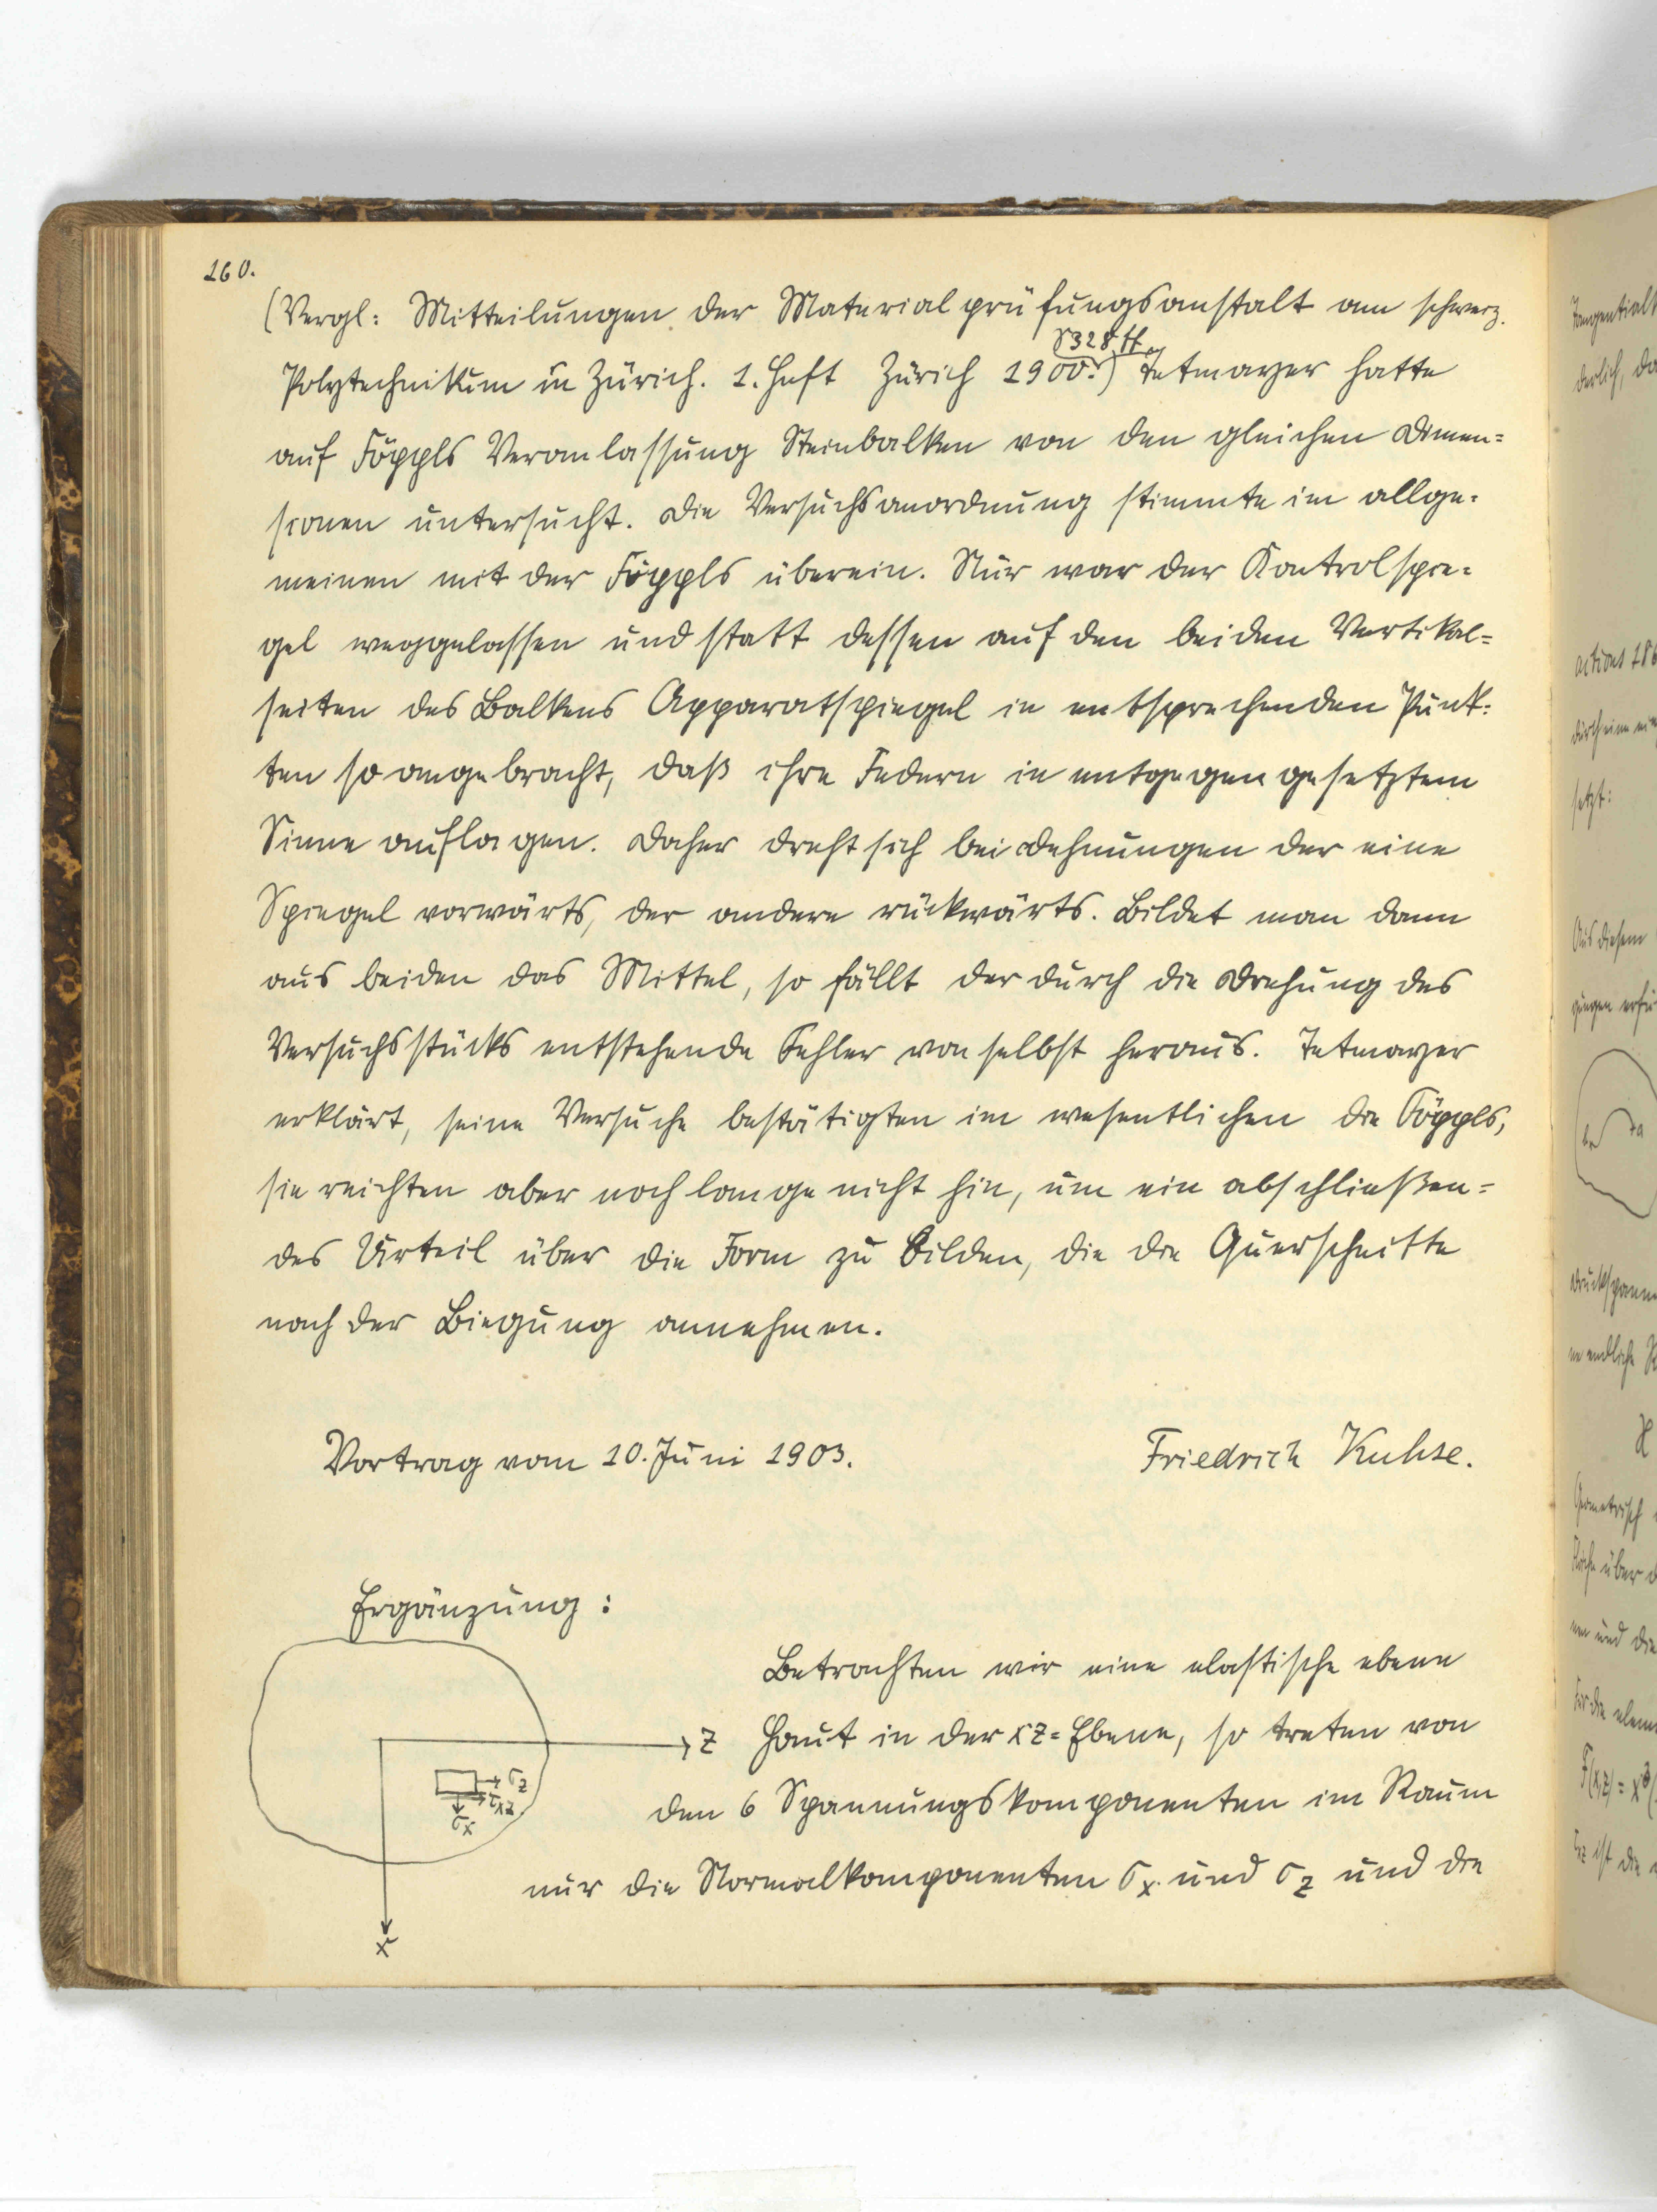 160.
(Vergl: Mitteilungen der Materialprüfungsanstalt am schweiz.
S 328 ff.
Polytechnikum in Zürich. 1. Heft Zürich 1900.) Tetmayer hatte
auf Föppls Veranlassung Steinbalken von den gleichen Dimen=
sionen untersucht. Die Versuchsanordnung stimmte im allge=
meinen mit der Föppls überein. Nur war der Kontrolspie=
gel weggelassen und statt dessen auf den beiden Vertikal=
seiten des Balkens Apparatspiegel in entsprechenden Punk=
ten so angebracht, daß ihre Federn in entgegengesetztem
Sinne auflagen. Daher dreht sich bei Dehnungen der eine
Spiegel vorwärts, der andere rückwärts. Bildet man dann
aus beiden das Mittel, so fällt der durch die Drehung des
Versuchsstücks entstehende Fehler von selbst heraus. Tetmayer
erklärt, seine Versuche bestätigten im wesentlichen die Föppls,
sie reichten aber noch lange nicht hin, um ein abschließen=
des Urteil über die Form zu bilden, die die Querschnitte
nach der Biegung annehmen.
Vortrag vom 10. Juni 1903. Friedrich Kuhse.
Ergänzung:
Betrachten wir eine elastische ebene
z Haut in der xz=Ebene, so treten von
σz
τxz
σx
den 6 Spannungskomponenten im Raum
nur die Normalkomponenten σx und σz und die
x